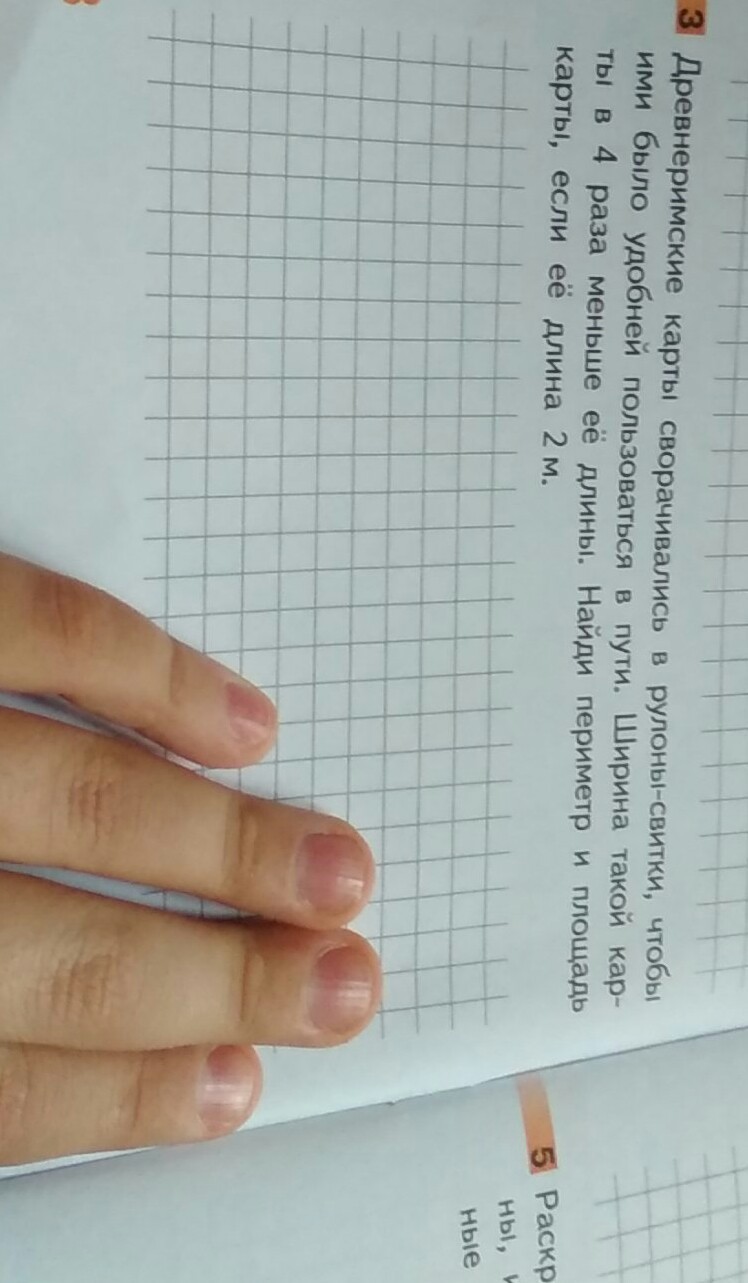 3 Древнеримские карты сворачивались в рулоны-свитки, чтобы
ими было удобней пользоваться в пути. Ширина такой кар-
ты в 4 раза меньше её длины. Найди периметр и площадь
карты, если её длина 2 м.
5 Раскр
ны, и
ные